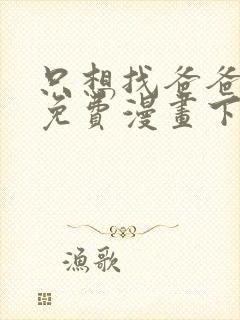 只想找爸爸
免費漫畫下
漁歌